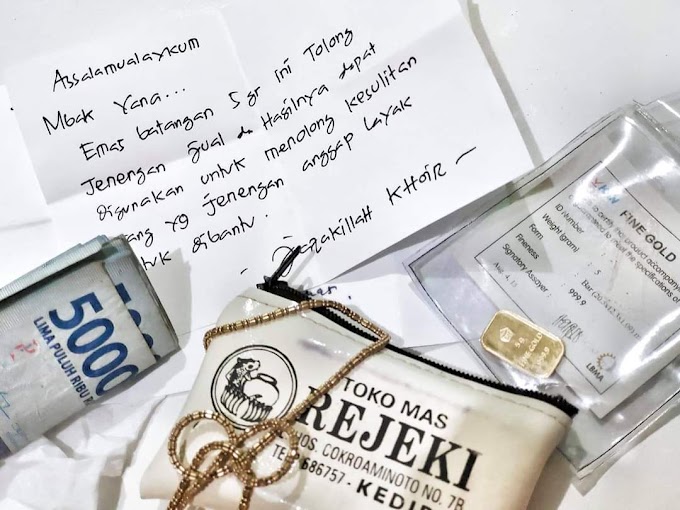 Assalamualaykum
Mbak Yana...
Emas batangan 5 gr ini Tolong
Jenengan Jual dn Hasilnya dapat
Digunakan untuk menolong kesulitan
ang yg jenengan anggap layak
tuk dibantu.
- Jazakillah KHOIR -
5000
LIMA PULUH RIBU
TOKO MAS
REJEKI
HOS. COKROAMINOTO NO. 7B
686757 - KEDI
FINE GOLD
ID Number
Weight (gram) : 5
Form : Bar
Fineness : 999.9
Signatory Assayer
LBMA